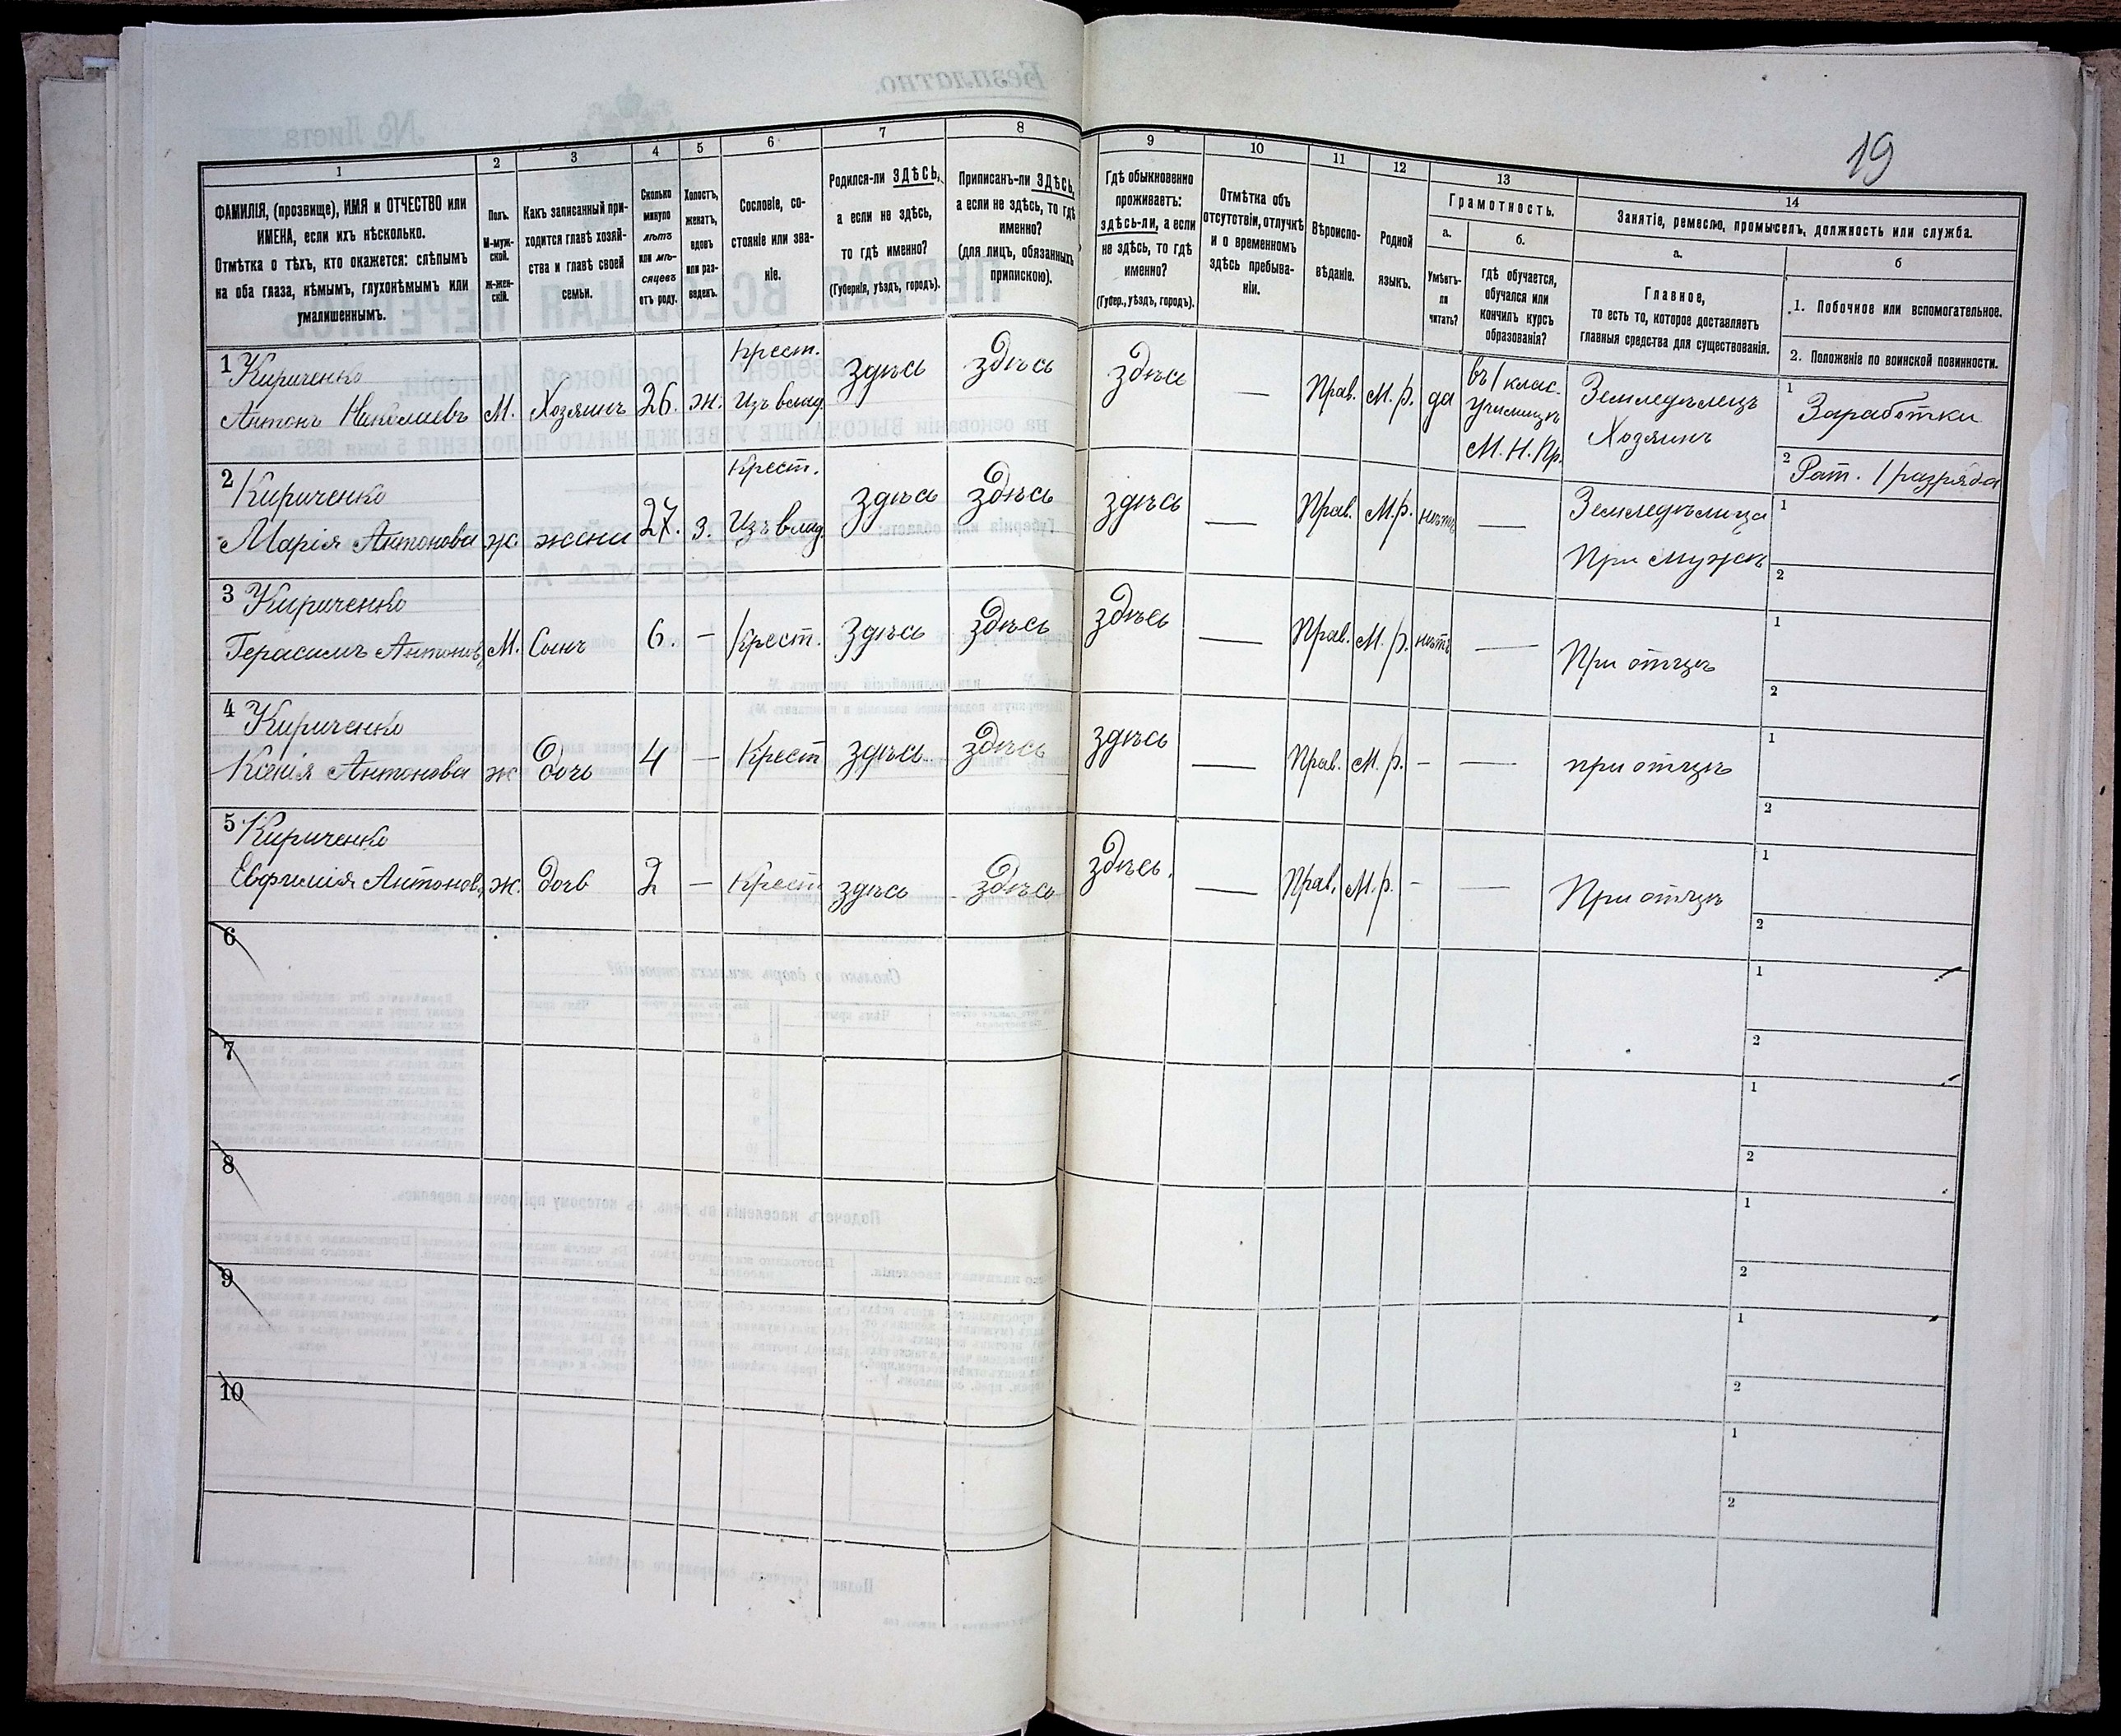 19
1
2
3
4
5
6
7
8
9
10
11
12
13
14
ФАМИЛІЯ, (прозвище), ИМЯ и ОТЧЕСТВО или
ИМЕНА, если ихъ нѣсколько.
Отмѣтка о тѣхъ, кто окажется: слѣпымъ
на оба глаза, нѣмымъ, глухонѣмымъ или
умалишеннымъ.
Полъ.
М-муж-
ской.
Ж-жен-
скій.
Какъ записанный при-
ходится главѣ хозяй-
ства и главѣ своей
семьи.
Сколько
минуло
лѣтъ
или мѣ-
сяцевъ
отъ роду.
Холостъ,
женатъ,
вдовъ
или раз-
веденъ.
Сословіе, со-
стояніе или зва-
ніе.
Родился-ли ЗДѢСЬ,
а если не здѣсь,
то гдѣ именно?
(Губернія, уѣздъ, городъ).
Приписанъ-ли ЗДѢСЬ,
а если не здѣсь, то гдѣ
именно?
(для лицъ, обязанныхъ
припискою).
Гдѣ обыкновенно
проживаетъ:
здѣсь-ли, а если
не здѣсь, то гдѣ
именно?
(Губер., уѣздъ, городъ).
Отмѣтка объ
отсутствіи, отлучкѣ
и о временномъ
здѣсь пребыва-
ніи.
Вѣроиспо-
вѣданіе.
Родной
языкъ.
Грамотность.
а.
Умѣетъ-
ли
читать?
б.
гдѣ обучается,
обучался или
кончилъ курсъ
образованія?
Занятіе, ремесло, промыселъ, должность или служба.
а.
Главное,
то есть то, которое доставляетъ
главныя средства для существованія.
б
1. Побочное или вспомогательное.
2. Положеніе по воинской повинности.
1 Кириченко Крест. здѣсь здѣсь здѣсь — Прав. М.р. да въ 1 клас. Земледѣлецъ 1 Заработки
Антонъ М. Хозяинъ 26. ж. Изъ влад. училищѣ Хозяинъ
М. Н. Пр. 2 Рат. 1 разряда
2 Кириченко Крест. здѣсь здѣсь здѣсь — Прав. М.р. нѣтъ — Земледѣлица 1
Марія Антонова ж. жена 27. з. Изъ влад. При мужѣ 2
3 Кириченко здѣсь 1
Герасимъ Антоновъ М. Сынъ 6. — Крест. здѣсь здѣсь — Прав. М.р. нѣтъ — При отцѣ 2
4 Кириченко здѣсь 1
Ксенія Антонова ж дочь 4 — Крест здѣсь здѣсь — Прав. М.р. - — при отцѣ 2
5 Кириченко здѣсь. 1
Евфимія Антонова ж. дочь 2 — Крест здѣсь здѣсь — Прав. М.р. - — При отцѣ 2
6 1
2
7 1
2
8 1
2
9 1
2
10 1
2